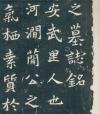 之墓誌銘
安武里人也
河澗簡公之
氣栖素質於